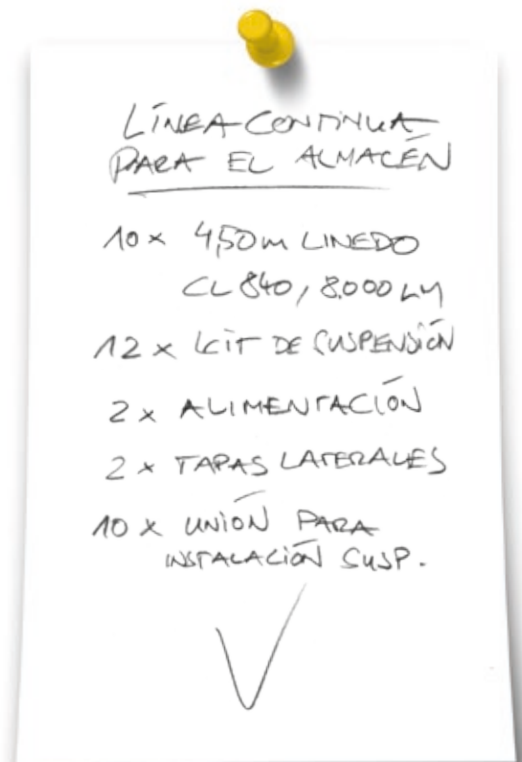 LÍNEA CONTINUA
PARA EL ALMACÉN
10x 4,50m LINEDO
CL 840, 8.000 LM
12x KIT DE SUSPENSIÓN
2x ALIMENTACIÓN
2x TAPAS LATERALES
10x UNIÓN PARA
INSTALACIÓN SUSP.